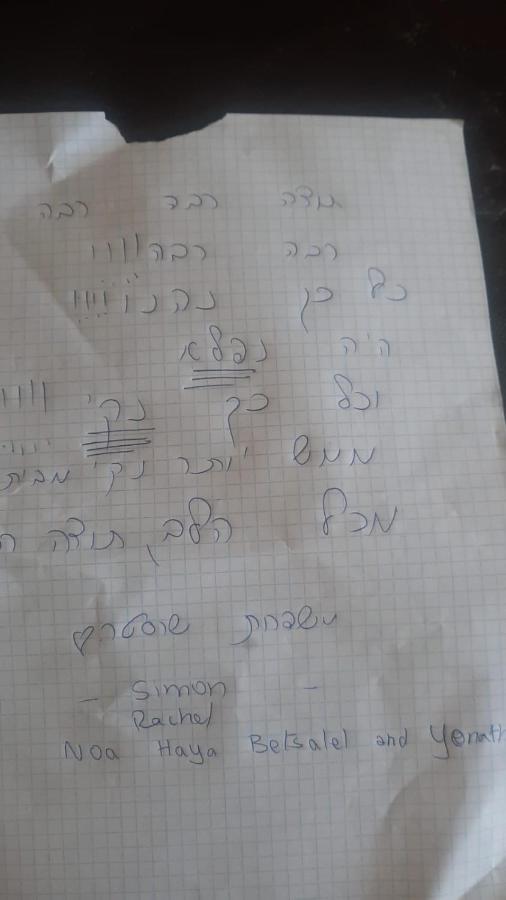 תודה רבה רבה
רבה רבה !!!!!
כל כך נהננו !!!!!
היה נפלא
וכל כך נקי !!!!
ממש יותר נקי מבית
מכל הלב, תודה ר
משפחת
- Simon -
Rachel
Noa Haya Betsalel and Yonath